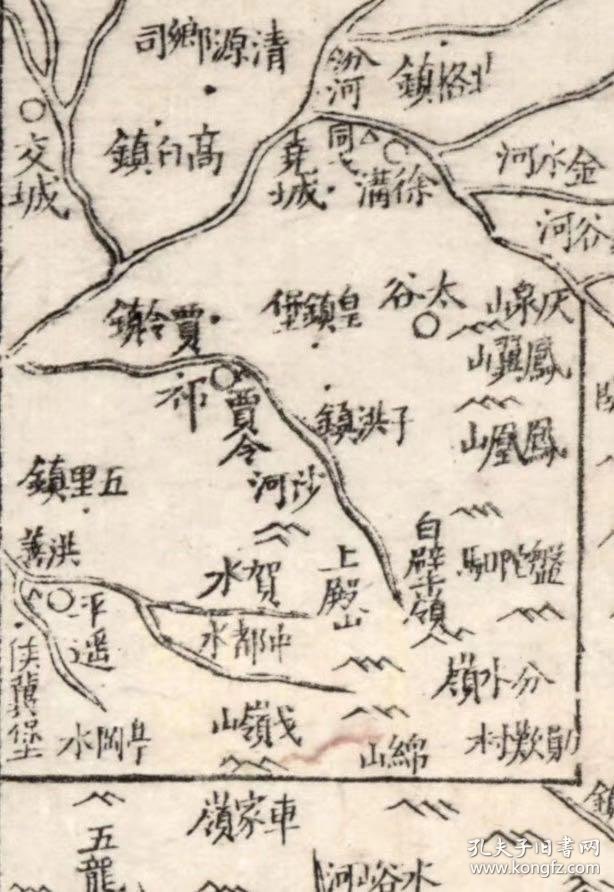 清源鄉司
汾河
北格鎮
高白鎮
同戈
徐溝
堯城
交城
金水河
谷河
太谷
皇鎮堡
賈令鎮
鳳翼山
鳳凰山
子洪鎮
祁
賈令
沙河
五里鎮
洪善
平遥
白壁嶺
上殿山
賀水
中都水
分水嶺
戈嶺山
綿山
亭岡水
車家嶺
五龍
水峪河
鎮
孔夫子旧书网
www.kongfz.com